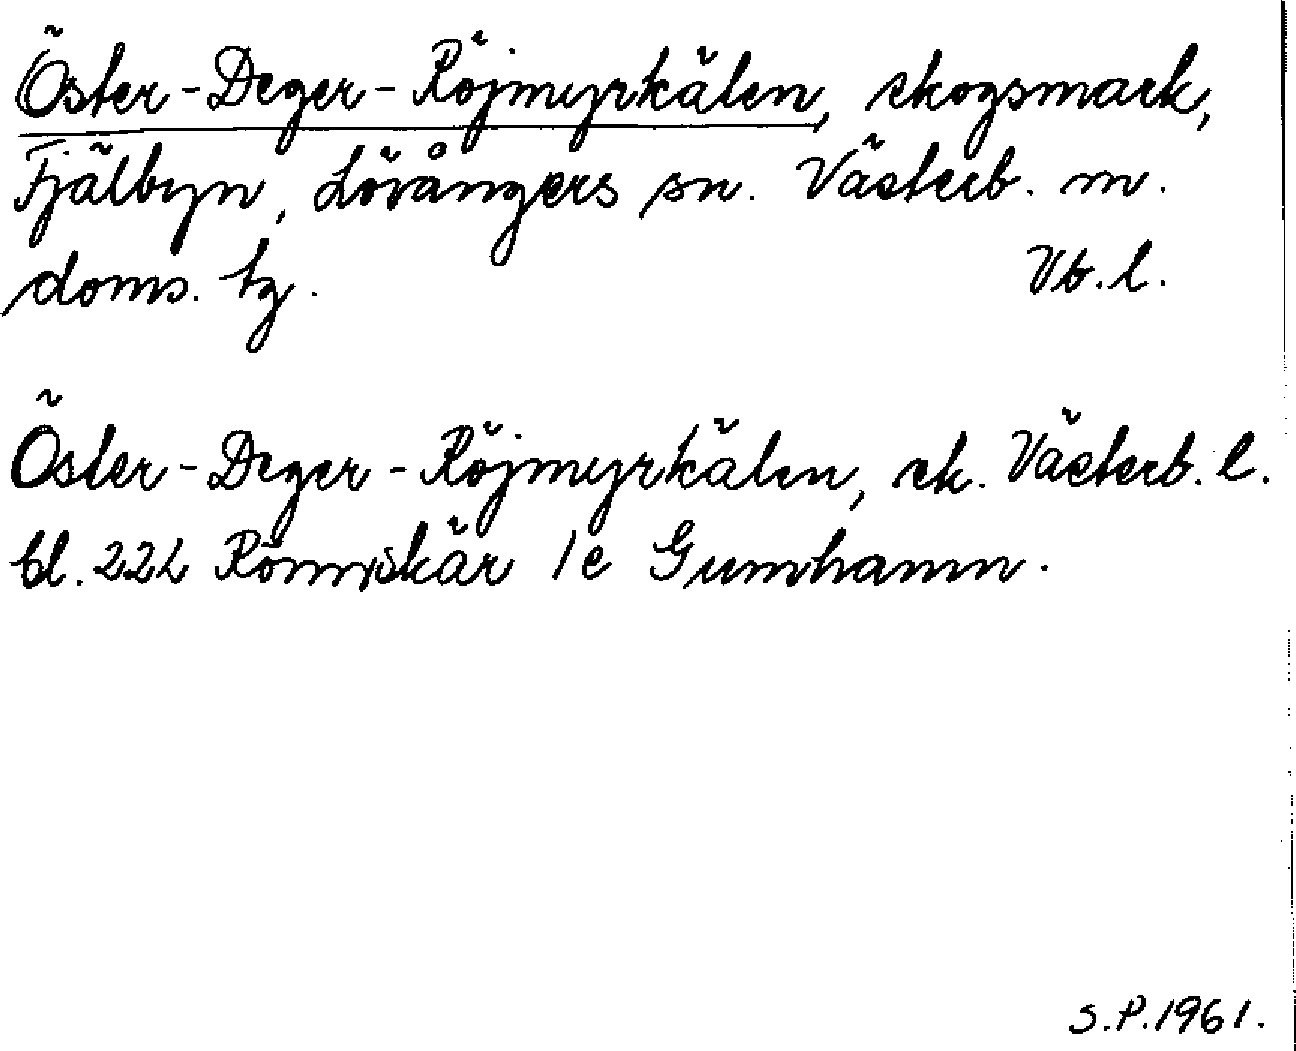 Öster-Deger-Röjmyrkälen, skogsmark,
Fjälbyn, Lövångers sn. Västerb. m.
doms. tg. Vb. l.
Öster-Deger-Röjmyrkälen, sk. Västerb. l.
bl. 222 Rönnskär 1e Gumhamn.
S.P. 1961.